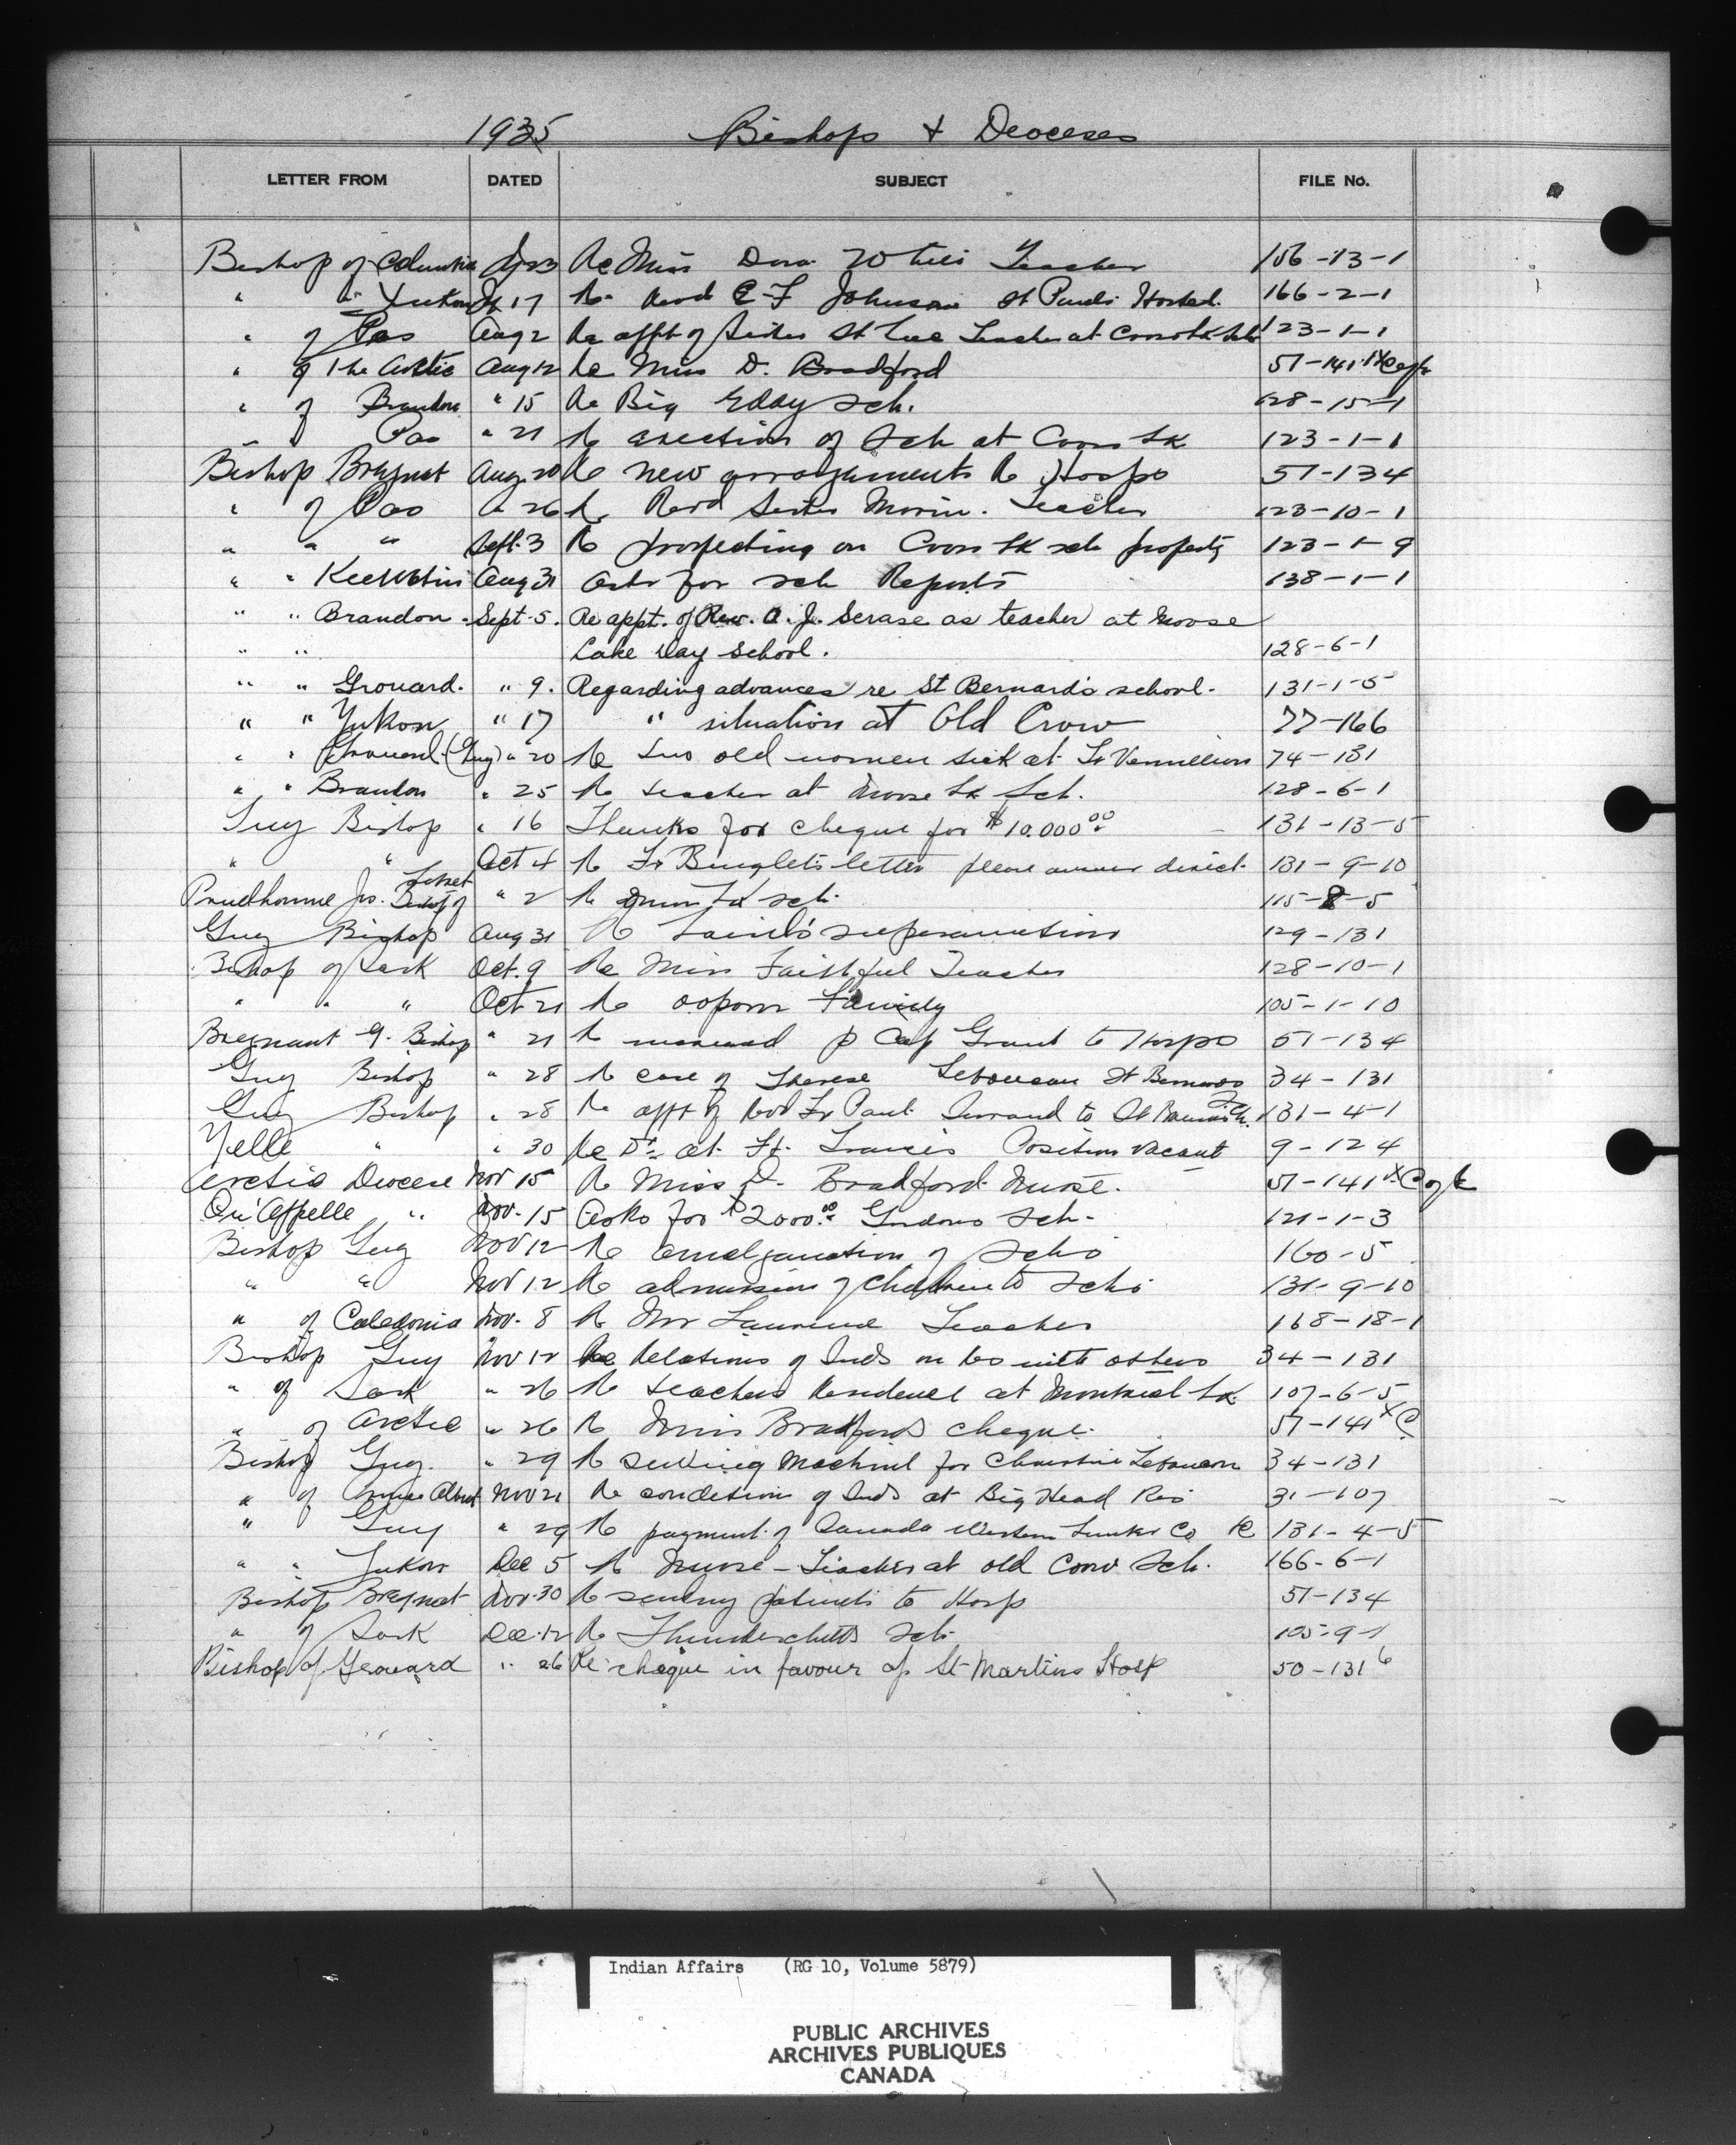 1935 Bishops & Dioceses
LETTER FROM DATED SUBJECT FILE No.
Bishop of Columbia 23 Re Miss Dora Teacher 156-13-1
" " Yukon 17 Re Revd E F Johnson St Pauls Hostel. 166-2-1
" of Pas Aug 2 Re appt of Sister St Luc Teacher at Cross Lk Sch 123-1-1
" of The Arctic Aug 12 Re Miss D. Bradford 51-141
" of Brandon " 15 Re Big Eddy Sch. 128-15-1
Pas " 21 Re erection of Sch at Cross Lk 123-1-1
Bishop Breynat Aug. 20 Re new arrangements Re Hosps 51-134
" of Pas " 26 Re Revd Sister Morin. Teacher 123-10-1
" " " Sept. 3 Re prospecting on Cross Lk sch property 123-1-9
" " Keewatin Aug 31 Asks for sch Reports 138-1-1
" " Brandon. Sept. 5. Re appt. of Rev. A. J. Serase as teacher at Moose
" " Lake Day School. 128-6-1
" " Grouard. " 9. Regarding advances re St Bernards school. 131-1-5
" " Yukon " 17 " situation at Old Crow 77-166
" " Grouard (Guy) " 20 Re two old women sick at Ft Vermillion 74-131
" " Brandon " 25 Re teacher at Moose Lk Sch. 128-6-1
Guy Bishop " 16 Thanks for cheque for $10,000.00 131-13-5
" " Oct 4 Re Fr letter please answer direct. 131-9-10
Prudhomme Jos. Bishop of " 2 Re Lk sch. 115-8-5
Guy Bishop Aug 31 Re Laird's superannuation 129-131
Bishop of Sask Oct. 9 Re Miss Faithful Teacher 128-10-1
" " " Oct 21 Re Family 105-1-10
Breynant G. Bishop " 21 Re p Cap Grant to Hosps 51-134
Guy Bishop " 28 Re case of Therese Leboucan St Bernards 34-131
Guy Bishop " 28 Re appt of Revd Fr Paul Serrand to St 131-4-1
Yelle " " 30 Re Dr. at Ft. Francis Position vacant 9-124
Arctic Diocese Nov 15 Re Miss D. Bradford Nurse. 51-141
Qu'Appelle " Nov. 15 Asks for $2000.00 Gordons Sch. 121-1-3
Bishop Guy Nov 12 Re amalgamation of Schs 160-5
" " Nov 12 Re admission of children to Schs 131-9-10
" of Caledonia Nov. 8 Re Mr Laurence Teacher 168-18-1
Bishop Guy Nov 12 Re Relations of Inds on Res with others 34-131
" of Sask " 26 Re teachers Residence at Montreal Lk 107-6-5
" of Arctic " 26 Re Miss Bradfords cheque. 51-141
Bishop Guy. " 29 Re sewing machine for Christine Leboucan 34-131
" of Prince Albert Nov 21 Re condition of Inds at Big Head Res 31-107
" Guy " 29 Re payment of Canada Western Lumber Co 131-4-5
" " Yukon Dec 5 Re Nurse-Teacher at old Crow Sch. 166-6-1
Bishop Breynat Nov. 30 Re sending patients to Hosp 51-134
" of Sask Dec. 12 Re Thunderchilds Sch 105-9-1
Bishop of Grouard " 26 Re cheque in favour of St Martins Hosp 50-131 6
Indian Affairs (RG 10, Volume 5879)
PUBLIC ARCHIVES
ARCHIVES PUBLIQUES
CANADA